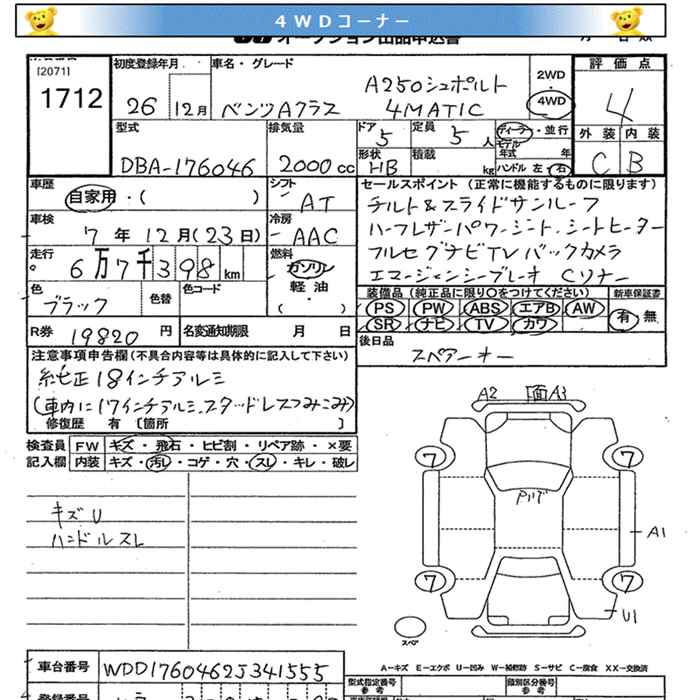 4WDコーナー
オークション出品申込書
[2071]
1712
初度登録年月
26 12月
車名・グレード
ベンツAクラス
A250シュポルト
4MATIC
2WD
・
4WD
評価点
4
外装 内装
C B
型式
DBA-176046
排気量
2000cc
ドア
5
定員
5人
形状
HB
積載
kg
ディーラー・並行
モデル
年式 年
ハンドル 左・右
車歴
自家用・( )
シフト
AT
車検
7年12月(23日)
冷房
AAC
走行
6万7千398km
燃料
ガソリン
軽油
・
( )
色
ブラック
色替
色コード
R券 19820円
名変通知期限 月 日
セールスポイント (正常に機能するものに限ります)
チルト&スライドサンルーフ
ハーフレザーパワーシート、シートヒーター
フルセグナビTVバックカメラ
エマージェンシーブレーキ Cソナー
装備品(純正品に限り○をつけてください)
PS PW ABS エアB AW
SR ナビ TV カワ
新車保証書
有 無
後日品
スペアーキー
注意事項申告欄(不具合内容等は具体的に記入して下さい)
純正18インチアルミ
(車内に17インチアルミ、スタッドレスつみこみ)
修復歴 有 [箇所 ]
検査員
記入欄
FW キズ・飛石・ヒビ割・リペア跡・×要
内装 キズ・汚レ・コゲ・穴・スレ・キレ・破レ
キズU
ハンドルスレ
A2 面A3
7 7
A1
7 7
U1
スペア
A-キズ E-エクボ U-凹み W-補修跡 S-サビ C-腐食 XX-交換済
車台番号 WDD1760462J341555
型式指定番号
参考
類別区分番号
参考
登録番号